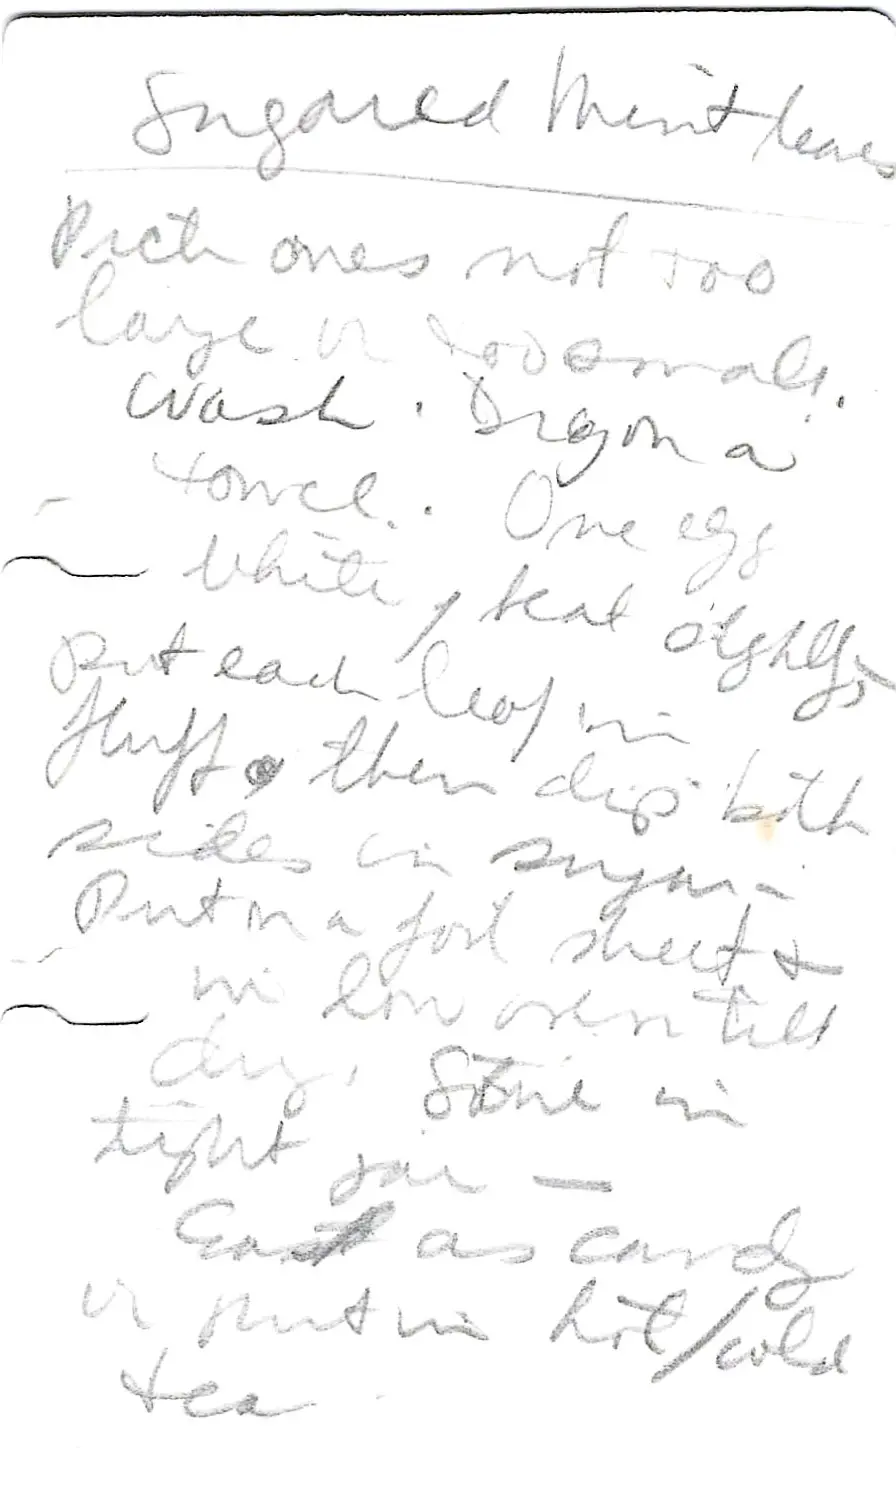 Sugared Mint leaves
Pick ones not too
large or too small.
Wash. Dry on a
towel. One egg
white, beat slightly,
Put each leaf in
fluff, then dip both
sides in sugar -
Put on a foil sheet +
in low oven till
dry. Store in
tight jar —
Eat as candy
or put in hot/cold
tea